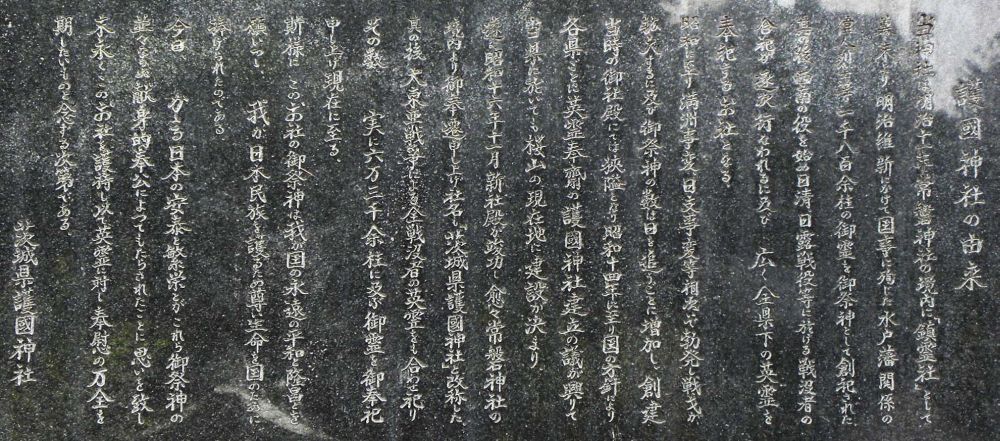 護國神社の由来
当神社は明治十一年常磐神社の境内に「鎮霊社」として
幕末より明治維新にかけて国事に殉じた水戸藩関係の
一千八百余柱の御霊を御祭神として創祀された
其の後西南の役を始め日清日露戦役等に於ける戦没者の
合祀が逐次行なわれるに及び 広く全県下の英霊を
奉祀するお社となる
昭和に至り満州事変日支事変等相次いで勃発し戦いが
拡大するに及び御祭神の数は日を追うごとに増加し創建
当時の御社殿にては狭隘となり昭和十四年に至り国の方針により
各県ごとに英霊奉斎の護國神社建立の議が興り
当県に於いても桜山の現在地に建設が決まり
遂に昭和十六年十一月新社殿が竣功し愈々常磐神社の
境内より御奉遷申し上げ社名「茨城県護國神社」と改称した
其の後大東亜戦争による全戦没者の英霊をも合わせ祀り
その数 実に六万三千余柱に及ぶ御霊を御奉祀
申し上げ現在に至る、
斯様にこのお社の御祭神は我が国の永遠の平和と隆昌とを
願いつつ、 我が日本民族を護るため尊い生命を国のために
捧げられたのである
今日 かゝる日本の安泰と繁栄とがこれら御祭神の
並々ならぬ献身的奉公によってもたらされたことに思いを致し
末永くこのお社を護持し以て英霊に対し奉慰の万全を
期したいものと念ずる次第である。
茨城県護國神社